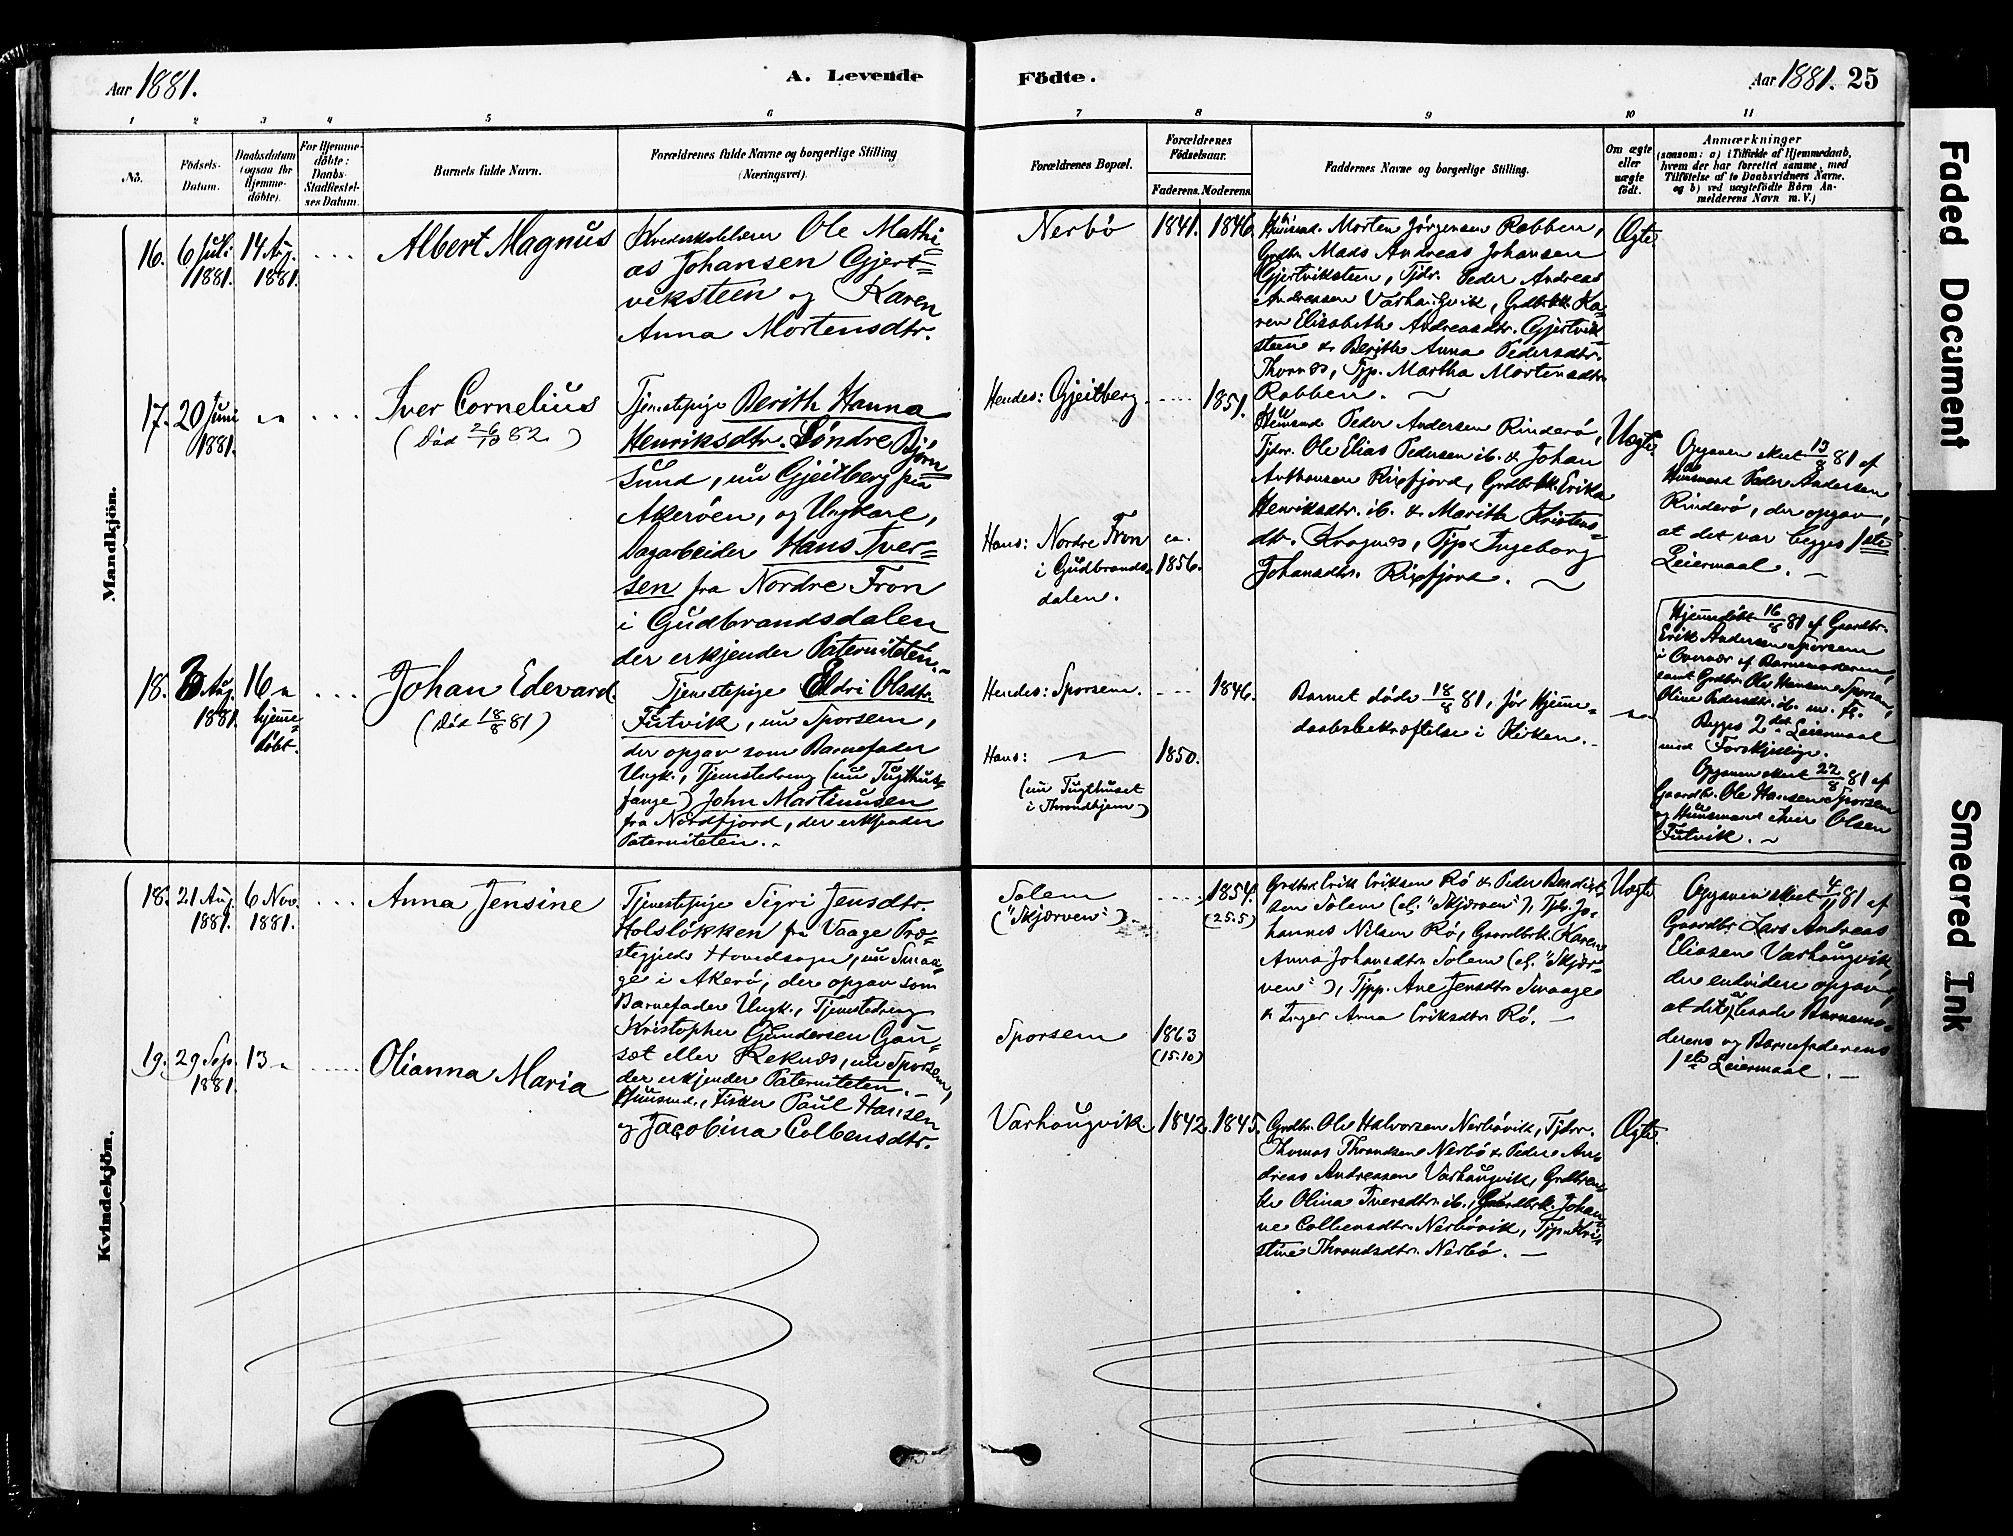 Aar 1881.
A. Levende
Födte.
Aar 1881. 25
1 2 3 4 5 6
7 8 9 10 11
No.
Födsels-
Datum.
Daabsdatum
(ogsaa for
Hjemme-
döbte).
For Hjemme-
döbte:
Daabs-
Stadfæstel-
ses Datum.
Barnets fulde Navn.
Forældrenes fulde Navne og borgerlige Stilling
(Næringsvei).
Forældrenes Bopæl.
Forældrenes
Födselsaar.
Faderens. Moderens.
Faddernes Navne og borgerlige Stilling.
Om ægte
eller
uægte
födt.
Anmærkninger
(saasom: a) i Tilfælde af Hjemmedaab,
hvem der har forrettet samme, med
Tilföielse af to Daabsvidners Navne,
og b) ved uægtefödte Börn An-
melderens Navn m. V.)
Mandkjön.
16. 6 Juli
1881.
14 Aug.
1881.
Albert Magnus
Ole Mathi-
as Johansen Gjert-
viksteen og Karen
Anna Mortensdtr.
Nerbö
1841. 1846.
Huusmd. Morten Jörgensen Robben,
Grdbr. Mads Andreas Johansen
Gjertviksteen, Tjdr. Peder Andreas
Andreasen Varhaugvik, Grdbrk. Ka-
ren Elisabeth Andreasdtr. Gjertvik-
steen & Berith Anna Pedersdtr.
Thornæs, Tjp. Martha Mortensdtr.
Robben.
Ægte
17. 20 Juni
1881.
Iver Cornelius
(Död 26/10 82)
Tjenestepige Berith Hanna
Henriksdtr. Söndre Björn-
sund, nu Gjeitberg paa
Akeröen, og Ungkarl,
Dagarbeider Hans Iver-
sen fra Nordre Fron
i Gudbrandsdalen
der erkjender Paterniteten.
Hendes: Gjeitberg.
1851.
Hans: Nordre Fron
i Gudbrands-
dalen.
ca.
1856.
Huusmd. Peder Andersen Rinderö,
Tjdr. Ole Elias Pedersen ib. & Johan
Anthonsen Rixfjord, Grdbrk. Erika
Henriksdtr. ib. & Marith Kristens-
dtr. Kragnæs, Tjp. Ingeborg
Johansdtr. Rixfjord.
Uægte
Opgaven skeet 13/8 81 af
Huusmand Peder Andersen
Rinderö, der opgav,
at det var begges 1ste
Leiermaal.
18. 3 Aug.
1881.
16
hjemme-
döbt.
Johan Edevard
(Död 18/8 81)
Tjenestepige Eldri Olsdtr.
Futvik, nu Sporsem,
der opgav som Barnefader
Ungk., Tjenestedreng (nu Tugthus-
fange) John Martinusen
fra Nordfjord, der erkjender
Paterniteten.
Hendes: Sporsem.
1846.
Hans:
(nu Tugthuset
i Throndhjem)
1850.
Barnet döde 18/8 81, för Hjemme-
daabsbekræftelse i Kirken.
Hjemmedöbt 16/8 81 af Gaardbr.
Erik Andersen Sporsem
i Overvær af Barnemoderen,
samt Grdbr. Ole Hansen Sporsem,
Oline Pedersdtr. ib. m. fl.
Begges 2det Leiermaal
med Forskjellige.
Opgaven skeet 22/8 81 af
Gaardbr. Ole Hansen Sporsem
og Huusmand Iver Olsen
Futvik.
Kvindekjön.
18. 21 Aug.
1881.
6 Nov.
1881.
Anna Jensine
Tjenestepige Sigri Jensdtr.
Holslökken fra Vaage Præ-
stegjelds Hovedsogn, nu Smaa-
ge i Akerö, der opgav som
Barnefader Ungk., Tjenestedreng
Kristopher Gundersen Gau-
sæt eller Reknæs, nu Sporsem,
der erkjender Paterniteten.
Solem
("Skjærven")
1854.
(25.5)
Sporsem
1863
(15.10)
Grdbr. Erik Eriksen Rö & Peder Bendict-
sen Solem (el. "Skjærven"), Tjdr. Jo-
hannes Nilsen Rö, Gaardbrk. Karen
Anna Johansdtr. Solem (el. "Skjær-
ven"), Tjpp. Ane Jensdtr. Smaage
& Inger Anna Eriksdtr. Rö.
Uægte
Opgaven skeet 4/11 81 af
Gaardbr. Lars Andreas
Eliasen Varhaugvik,
der endvidere opgav,
at dette er baade Barnemo-
derens og Barnefaderens
1ste Leiermaal.
19. 29 Sep.
1881.
13
Olianna Maria
Huusmd., Fisker Paul Hansen
og Jacobina Colbensdtr.
Varhaugvik
1842. 1845.
Grdbr. Ole Halvorsen Nerbövik, Tjdr.
Thomas Throndsen Nerbö & Peder An-
dreas Andreasen Varhaugvik, Grdbren-
ke Olina Iversdtr. ib., Gaardbrk. Johan-
ne Colbensdtr. Nerbövik, Tjp. Kri-
stine Throndsdtr. Nerbö.
Ægte
Faded Document
Smeared Ink